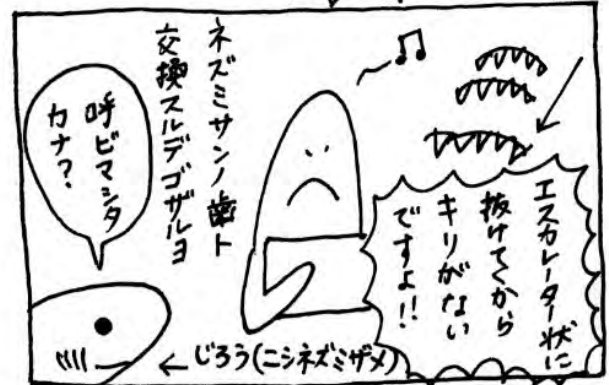 エスカレーター状に
抜けてくから
キリがない
ですよ!!
ネズミサンノ歯ト
交換スルデゴザルヨ
呼ビマシタ
カナ?
←じろう(ニシネズミザメ)